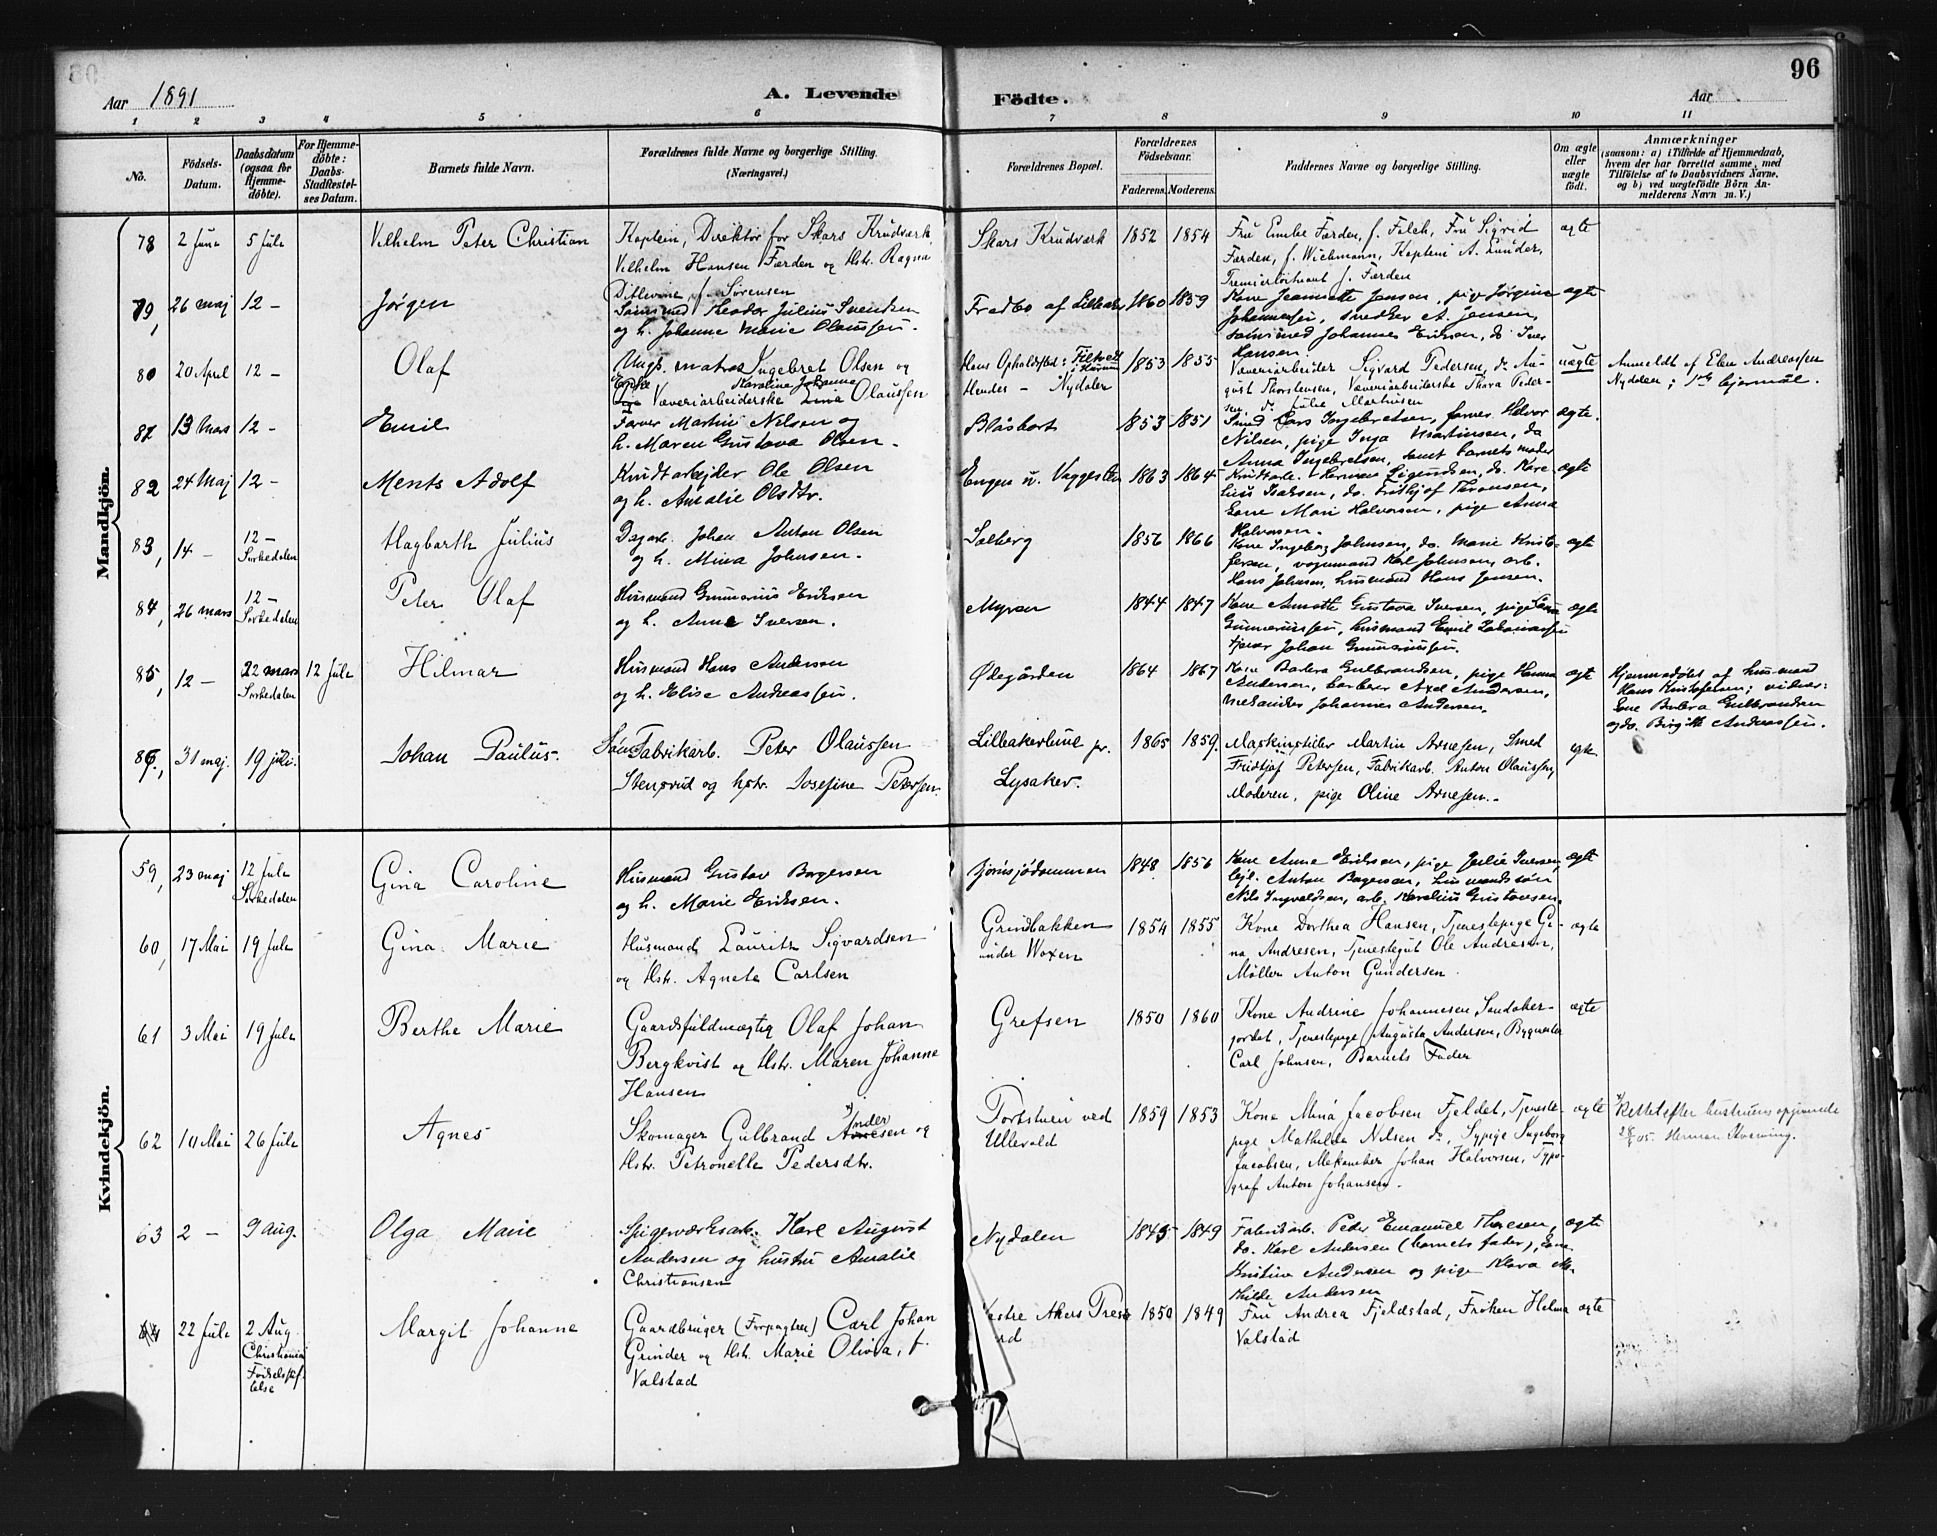 96
Aar 1891
A. Levende Födte.
Aar
1 2 3 4 5 6 7 8 9 10 11
No.
Födsels-Datum.
Daabsdatum (ogsaa for Hjemmedöbte).
For Hjemmedöbte: Daabs-Stadfæstelses Datum.
Barnets fulde Navn.
Forældrenes fulde Navne og borgerlige Stilling. (Næringsvei.)
Forældrenes Bopæl.
Forældrenes Födselsaar.
Faderens. Moderens.
Faddernes Navne og borgerlige Stilling.
Om ægte eller uægte födt.
Anmærkninger
(saasom: a) i Tilfælde af Hjemmedaab, hvem der har forrettet samme, med Tilföielse af to Daabsvidners Navne, og b) ved uægtefödte Börn Anmelderens Navn m. V.)
Mandkjön.
78 2 Juni 5 Juli Vilhelm Peter Christian
Kaptein, Direktör for Skars Krudværk
Vilhelm Hansen Færden og Hstr. Ragna
Ditlevine f. Sørensen
Skars Krudværk 1852 1854
Færden, f. Wichmann, Kaptein A. Lunder,
Premierløitnant J. Færden
ægte
79, 26 maj 12 - Jørgen
Theodor Julius Svendsen
og h. Johanne Marie Olaussen.
1860 1859
Kone Jeanette Jensen, pige Jørgine
Johannessen, snedker A. Jensen,
Johannes Eriksen, do Iver
Hansen.
ægte
80 20 April 12 - Olaf
Ungk. matros Ingebret Olsen og
Karoline Johanne
Pige Væveriarbeiderske Olaussen
Hans Opholdssted:
Hendes - Nydalen
1853 1855
Væveriarbeider Sigvard Pedersen, do August Thorstensen, Væveriarbeiderske Thora Pedersen, do. Julie Martinsen
uægte
Anmeldt af Elen Andreassen
Nydalen; 1ste leiermål.
81 13 Mars 12 - Emil
Farver Martin Nilsen og
h. Maren Gustava Olsen.
1853 1851
Smed Lars Ingebretsen, farver Halvor
Nilsen, pige Inga Martinsen, do
Anna Ingebretsen, samt barnets moder
ægte.
82 24 Maj 12 - Ments Adolf
Krudtarbejder Ole Olsen
og h. Amalie Olsdtr.
Engen u. 1863 1864
Mari Halvorsen, pige Anna
Halvorsen.
ægte
83, 14 - 12 - Sørkedalen
Hagbarth Julius
Dagarb. Johan Anton Olsen
og h. Mina Johnsen.
Solberg 1856 1866
Kone Ingeborg Johnsen, do. Marie Kristofersen, vognmand Karl Johnsen, arb.
Hans Johnsen, husmand Hans Jensen.
ægte
84, 26 mars 12 - Sørkedalen
Peter Olaf
Husmand Gunnerius Eriksen
og h. Anne Iversen.
Myren 1844 1847
Kone Anette Gustava Iversen, pige
Gunneriussen, husmand Emil Zakariassen
Johan Gunneriussen.
ægte
85, 12 - 22 mars Sørkedalen 12 Juli Hilmar
Husmand Hans Andersen
og h. Elise Andreassen.
Ødegården 1864 1867
Kone Barbra Gulbrandsen, pige Hanna
Andersen, barberer Axel Andersen,
mekaniker Johannes Andersen.
ægte
Hjemmedøbt af husmand
Hans Kristofersen; vidner:
kone Barbra Gulbrandsen
og do. Birgitte Andreassen.
86, 31 maj. 19 juli. Johan Paulus.
Fabrikarb. Peter Olaussen
Stensrud og hstr. Josefine Petersen.
Lysaker. 1865 1859.
Maskinstiller Martin Arnesen, Smed
Fridtjöf Petersen, Fabrikarb. Anton Olaussen,
Moderen, pige Oline Arnesen.
ægte
Kvindekjön.
59, 23 maj 12 Juli Sørkedalen
Gina Caroline
Husmand Gustav Borgersen
og h. Marie Eriksen.
1848 1856
Kone Anna Eriksen, pige Julie Iversen,
Anton Borgersen, husmandssøn
Nils Ingvaldsen, arb. Karelius Gustavsen.
ægte
60, 17 Mai 19 Juli Gina Marie
Husmand Laurits Sigvardsen
og Hstr. Agnete Carlsen
Grindbakken
under Woxen
1854 1855
Kone Dorthea Hansen, Tjenestepige Gina Andresen, Tjenestegut Ole Andresen,
Møller Anton Gundersen.
ægte
61 3 Mai 19 Juli Berthe Marie
Gaardsfuldmægtig Olaf Johan
Bergkvist og Hstr. Maren Johanne
Hansen
Grefsen 1850 1860
Kone Andrine Johannesen Sandakerjordet, Tjenestepige Augusta Andersen, Bygmester
Carl Johnsen, Barnets Fader
ægte
62 10 Mai 26 Juli Agnes
Skomager Gulbrand Andersen og
Hstr. Petronelle Pedersdtr.
Tortstuen ved
Ullevold
1859 1853
Kone Mina Jacobsen Fjeldet, Tjenestepige Mathilda Nilsen do, Sypige Ingeborg
Jacobsen, Mekaniker Johan Halvorsen, Typograf Anton Johansen.
ægte
Rettet efter hustruens opgivende
Herman Kvenning.
63 2 - 9 aug. Olga Marie
Spigerværksarb. Karl August
Andersen og hustru Amalie
Christiansen
Nydalen 1845 1849
Fabrikarb. Peder Emanuel Thoresen,
do. Karl Andersen (barnets fader), kone
Kristine Andersen og pige Klara Mathilde Andersen
ægte
64 22 Juli 2 Aug. Christiania Fødselsstiftelse
Margit Johanne
Gaardbruger (Forpagter) Carl Johan
Grinder og Hstr. Marie Olivia, f.
Valstad
Vestre Akers Prestegaard 1850 1849
Fru Andrea Fjeldstad, Frøken Helma
Valstad
ægte